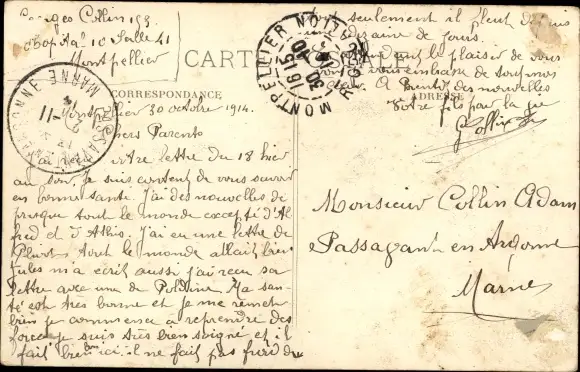 Georges Collin 153
Hopital 10 Salle 41
Montpellier
CARTE
CORRESPONDANCE
ADRESSE
MONTPELLIER
16-15
30-10
MARNE
Montpellier 30 octobre 1914.
chers Parents
J'ai reçu votre lettre du 18 hier
au soir. Je suis content de vous savoir
en bonne santé. J'ai des nouvelles de
presque tout le monde excepté d'Al
fred et d'Athis. J'ai eu une lettre de
tout le monde allait bien
Jules m'a écrit aussi j'ai reçu sa
lettre avec une de Ma san-
té est très bonne et je me remets
bien je commence à reprendre des
forces je suis très bien soigné et il
fait bien bon ici il ne fait pas froid du
tout seulement il pleut depuis
une dizaine de jours.
le plaisir de vous
vous embrasse de tout mon
cœur. A bientôt des nouvelles
Votre fils pour la vie
GCollin
Monsieur Collin Adam
Passavant en Argonne
Marne